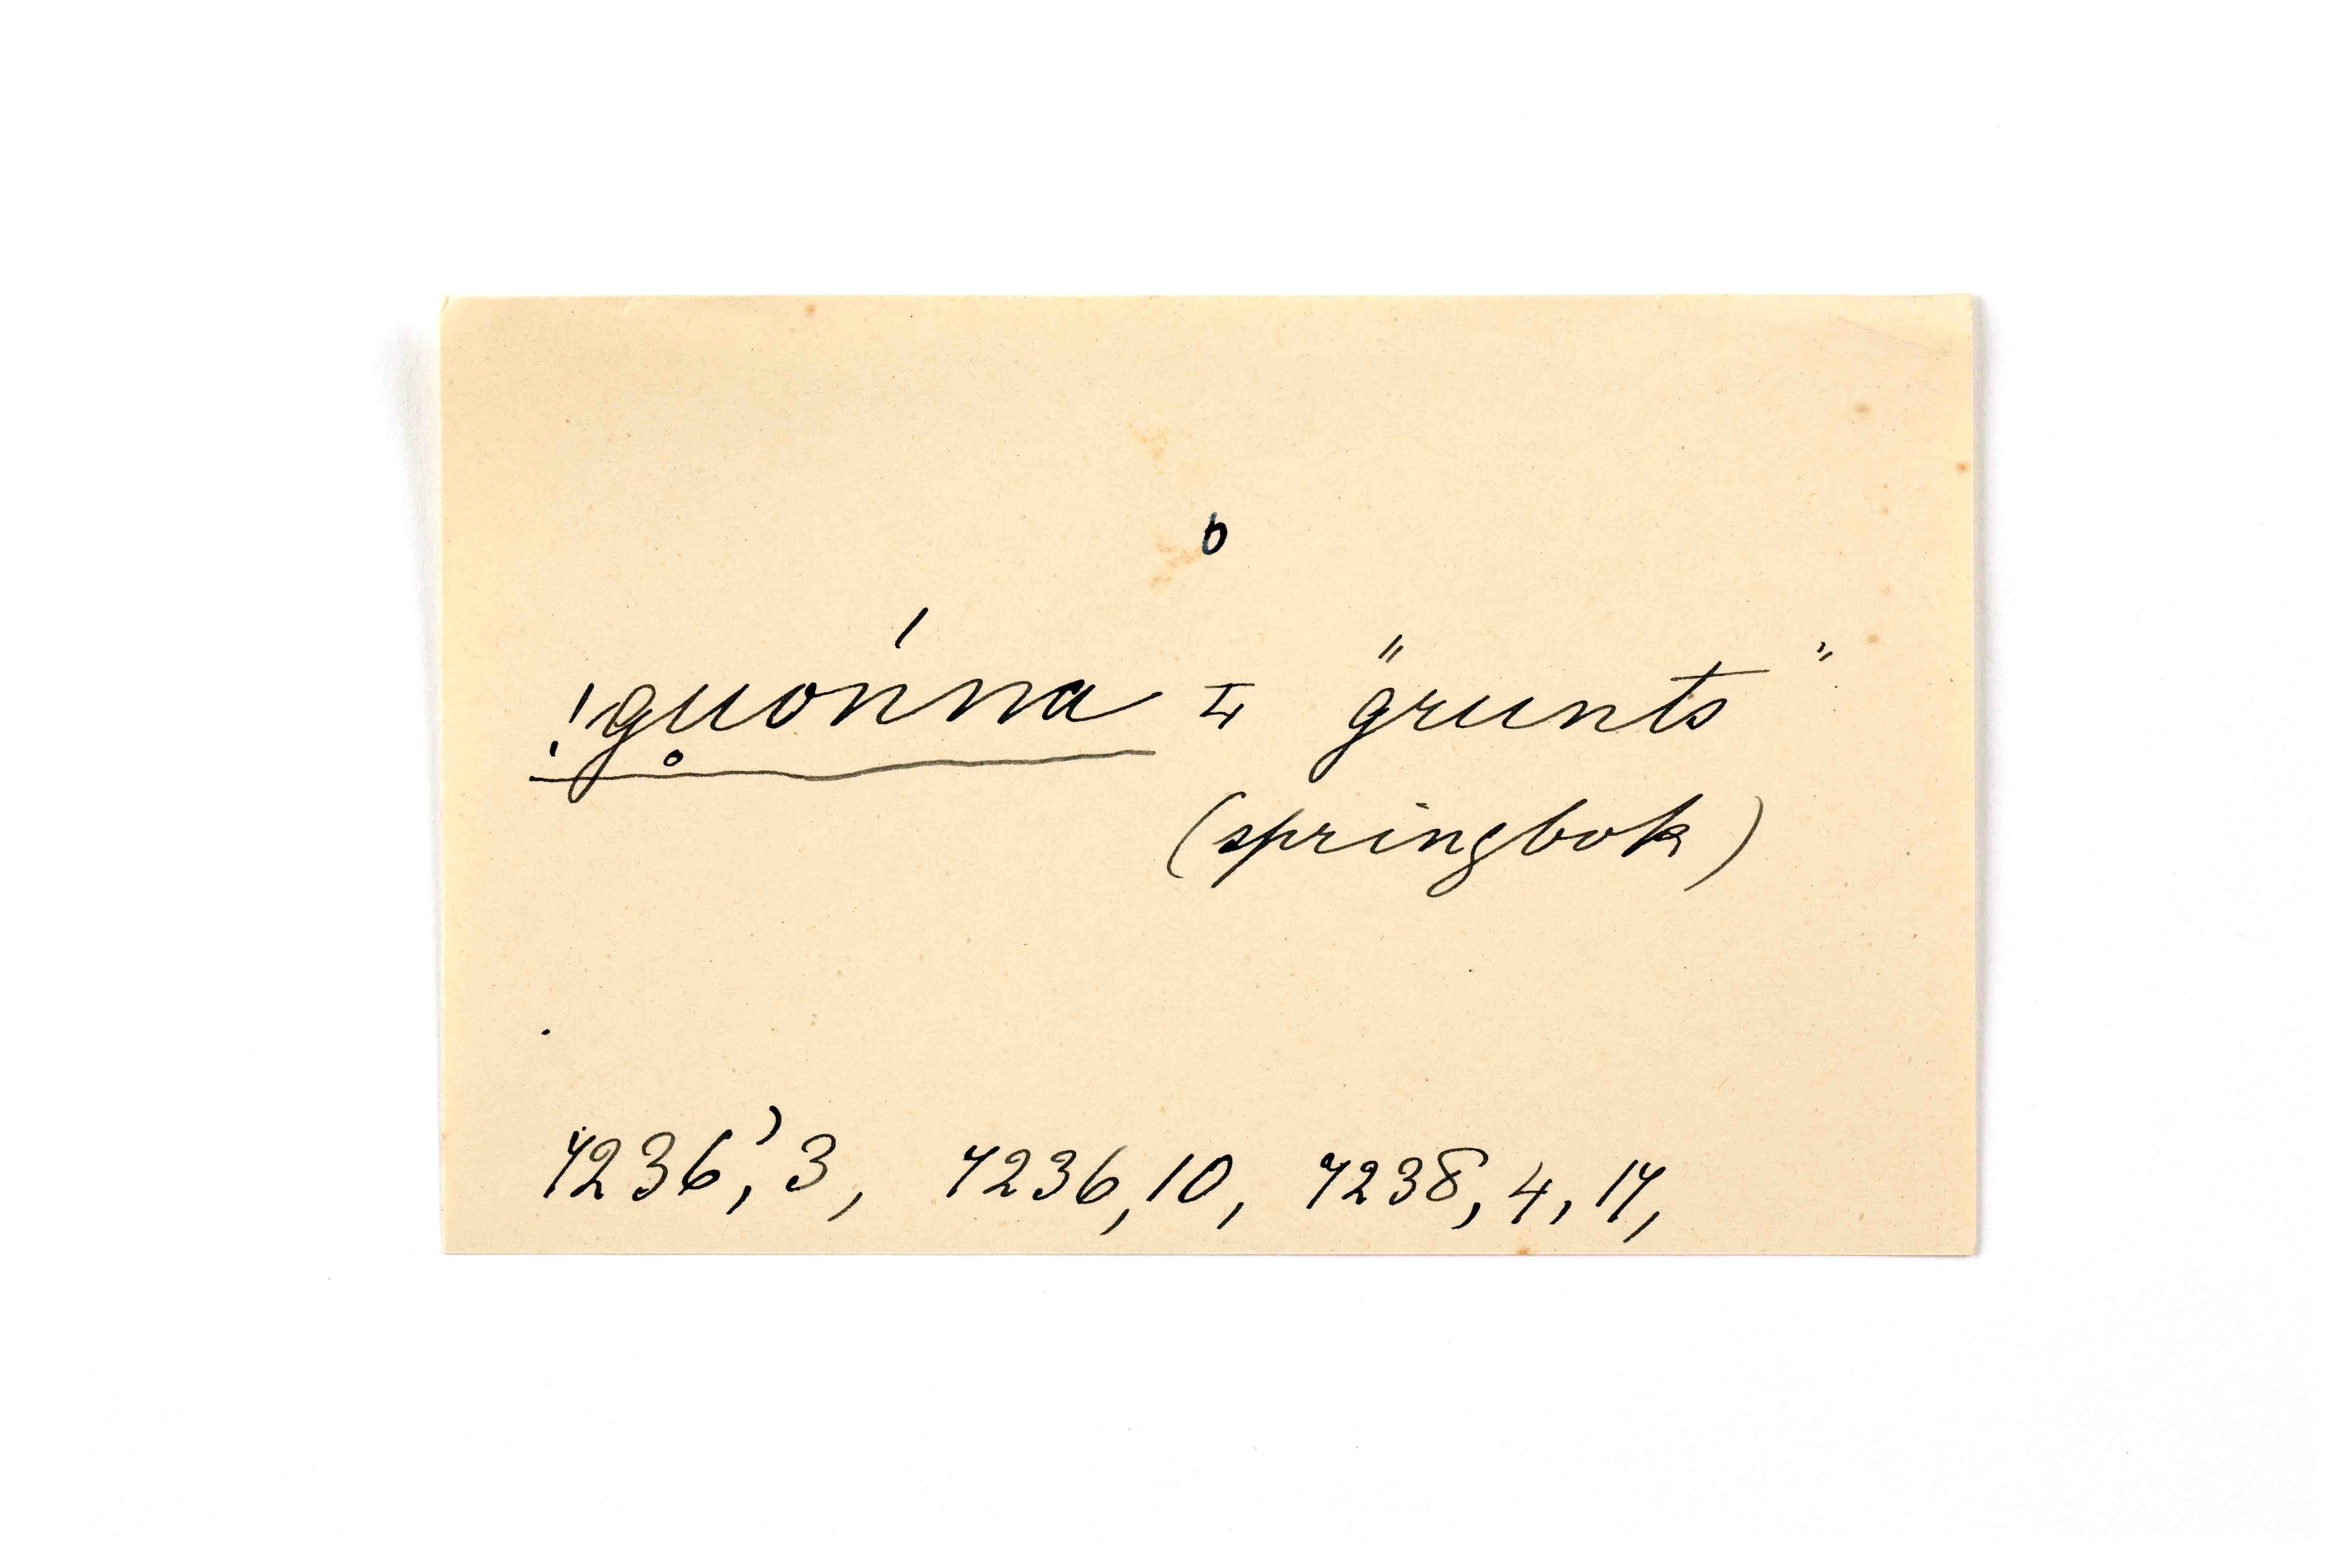 b
!gu̥ónna = "grunts"
(springbok)
7236, 3, 7236, 10, 7238, 4, 17,